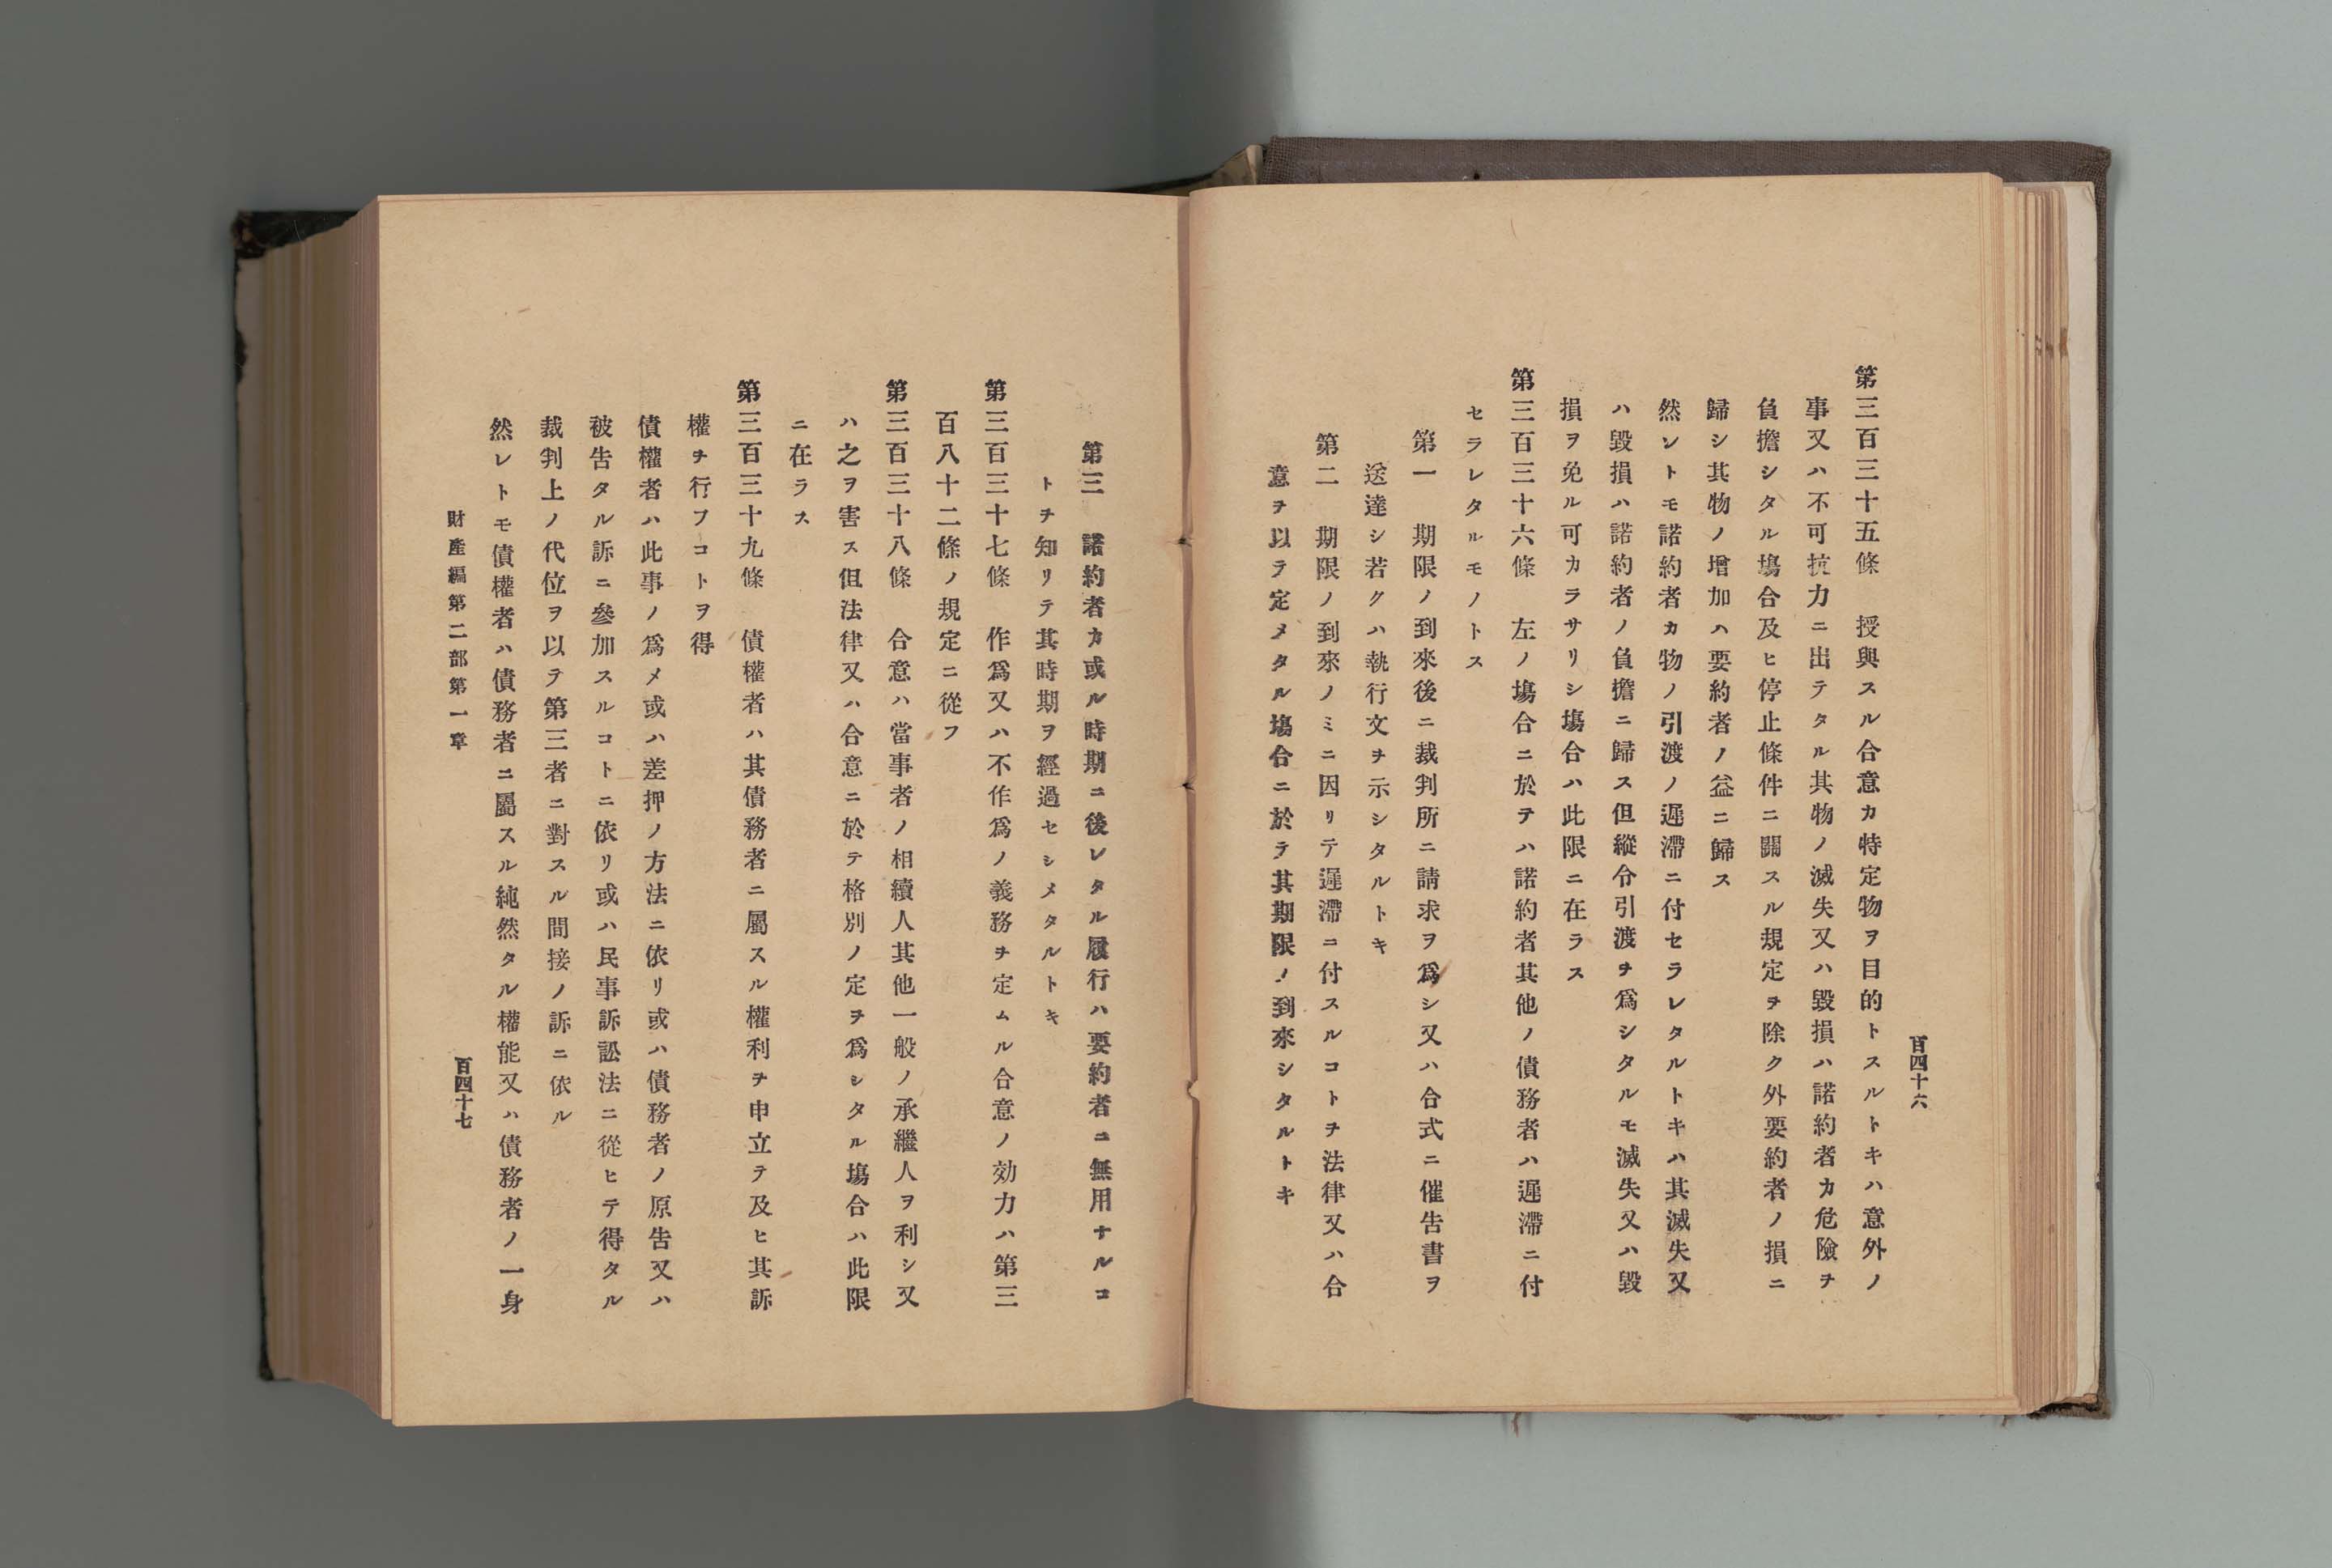 百四十六
第三百三十五條　授與スル合意カ特定物ヲ目的トスルトキハ意外ノ
事又ハ不可抗力ニ出テタル其物ノ滅失又ハ毀損ハ諾約者カ危險ヲ
負擔シタル塲合及ヒ停止條件ニ關スル規定ヲ除ク外要約者ノ損ニ
歸シ其物ノ增加ハ要約者ノ益ニ歸ス
然レトモ諾約者カ物ノ引渡ノ遲滯ニ付セラレタルトキハ其滅失又
ハ毀損ハ諾約者ノ負擔ニ歸ス但縱令引渡ヲ爲シタルモ滅失又ハ毀
損ヲ免ル可カラサリシ塲合ハ此限ニ在ラス
第三百三十六條　左ノ塲合ニ於テハ諾約者其他ノ債務者ハ遲滯ニ付
セラレタルモノトス
第一　期限ノ到來後ニ裁判所ニ請求ヲ爲シ又ハ合式ニ催告書ヲ
送達シ若クハ執行文ヲ示シタルトキ
第二　期限ノ到來ノミニ因リテ遲滯ニ付スルコトヲ法律又ハ合
意ヲ以テ定メタル塲合ニ於テ其期限ノ到來シタルトキ
第三　諾約者カ或ル時期ニ後レタル履行ハ要約者ニ無用ナルコ
トヲ知リテ其時期ヲ經過セシメタルトキ
第三百三十七條　作爲又ハ不作爲ノ義務ヲ定ムル合意ノ効力ハ第三
百八十二條ノ規定ニ從フ
第三百三十八條　合意ハ當事者ノ相續人其他一般ノ承繼人ヲ利シ又
ハ之ヲ害ス但法律又ハ合意ニ於テ格別ノ定ヲ爲シタル塲合ハ此限
ニ在ラス
第三百三十九條　債權者ハ其債務者ニ屬スル權利ヲ申立テ及ヒ其訴
權ヲ行フコトヲ得
債權者ハ此事ノ爲メ或ハ差押ノ方法ニ依リ或ハ債務者ノ原告又ハ
被告タル訴ニ參加スルコトニ依リ或ハ民事訴訟法ニ從ヒテ得タル
裁判上ノ代位ヲ以テ第三者ニ對スル間接ノ訴ニ依ル
然レトモ債權者ハ債務者ニ屬スル純然タル權能又ハ債務者ノ一身
財產編第二部第一章
百四十七